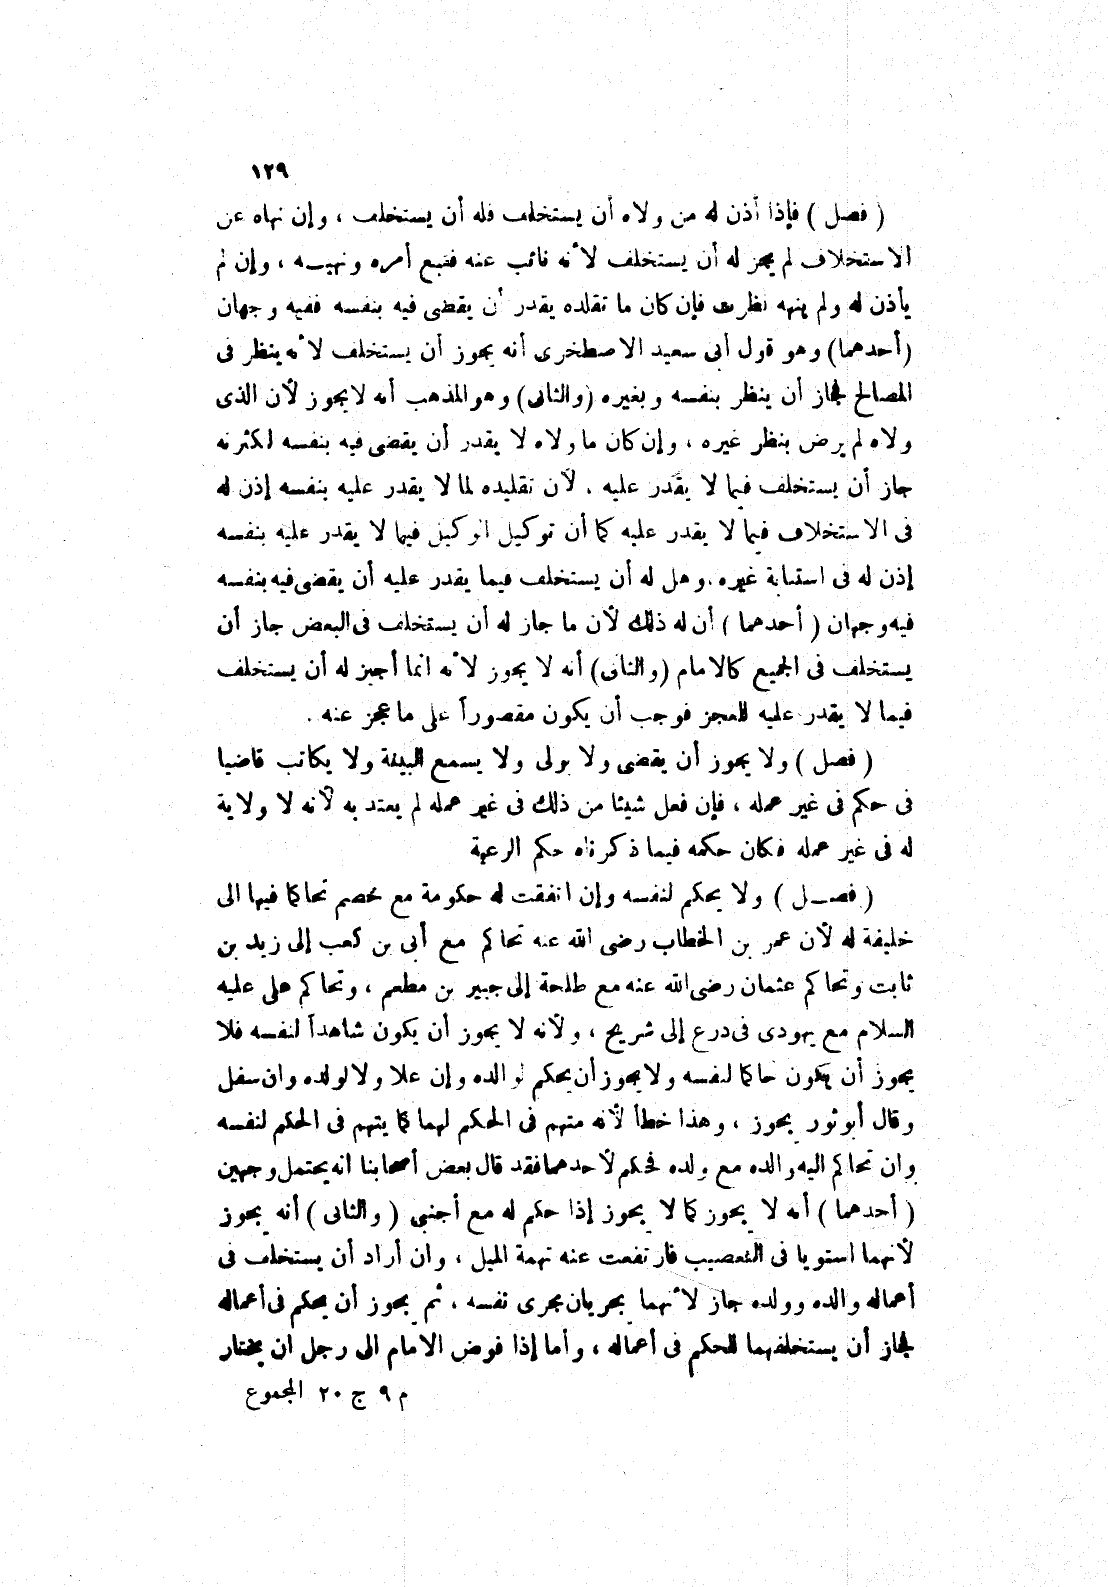 ١٢٩
( فصل ) فإذا أذن له من ولاه أن يستخلف فله أن يستخلف ، وإن نهاه عن
الاستخلاف لم يجز له أن يستخلف لأنه نائب عنه فتبع أمره ونهيـه ، وإن لم
يأذن له ولم ينهه نظرت فإن كان ما تقلده يقدر أن يقضى فيه بنفسه ففيه وجهان
(أحدهما) وهو قول أبى سعيد الاصطخرى أنه يجوز أن يستخلف لأنه ينظر فى
المصالح فجاز أن ينظر بنفسه وبغيره (والثانى) وهو المذهب أنه لا يجوز لأن الذى
ولاه لم يرض بنظر غيره ، وإن كان ما ولاه لا يقدر أن يقضى فيه بنفسه لكثرته
جاز أن يستخلف فيما لا يقدر عليه . لأن تقليده لما لا يقدر عليه بنفسه إذن له
فى الاستخلاف فيما لا يقدر عليه كما أن توكيل الوكيل فيما لا يقدر عليه بنفسه
إذن له فى استنابة غيره . وهل له أن يستخلف فيما يقدر عليه أن يقضى فيه بنفسه
فيه وجهان ( أحدهما ) أن له ذلك لأن ما جاز له أن يستخلف فى البعض جاز أن
يستخلف فى الجميع كالامام (والثانى) أنه لا يجوز لأنه انما أجيز له أن يستخلف
فيما لا يقدر عليه للعجز فوجب أن يكون مقصوراً على ما عجز عنه .
( فصل ) ولا يجوز أن يقضى ولا يولى ولا يسمع البينة ولا يكاتب قاضيا
فى حكم فى غير عمله ، فإن فعل شيئا من ذلك فى غير عمله لم يعتد به لأنه لا ولاية
له فى غير عمله فكان حكمه فيما ذكرناه حكم الرعية
( فصـل ) ولا يحكم لنفسه وإن اتفقت له حكومة مع خصم تحاكما فيها الى
خليفة له لأن عمر بن الخطاب رضى الله عنه تحاكم مع أبى بن كعب إلى زيد بن
ثابت وتحاكم عثمان رضى الله عنه مع طلحة إلى جبير بن مطعم ، وتحاكم على عليه
السلام مع يهودى فى درع إلى شريح ، ولأنه لا يجوز أن يكون شاهداً لنفسه فلا
يجوز أن يكون حاكما لنفسه ولا يجوز أن يحكم لوالده وإن علا ولا لولده وان سفل
وقال أبو ثور يجوز ، وهذا خطأ لأنه متهم فى الحكم لهما كما يتهم فى الحكم لنفسه
وان تحاكم اليه والده مع ولده فحكم لأحدهما فقد قال بعض أصحابنا انه يحتمل وجهين
( أحدهما ) أنه لا يجوز كما لا يجوز إذا حكم له مع أجنبى ( والثانى ) أنه يجوز
لأنهما استويا فى التعصيب فارتفعت عنه تهمة الميل ، وان أراد أن يستخلف فى
أعماله والده وولده جاز لأنهما يجريان مجرى نفسه ، ثم يجوز أن يحكم فى أعماله
فجاز أن يستخلفهما للحكم فى أعماله ، وأما إذا فوض الامام الى رجل ان يختار
م ٩ ج ٢٠ المجموع